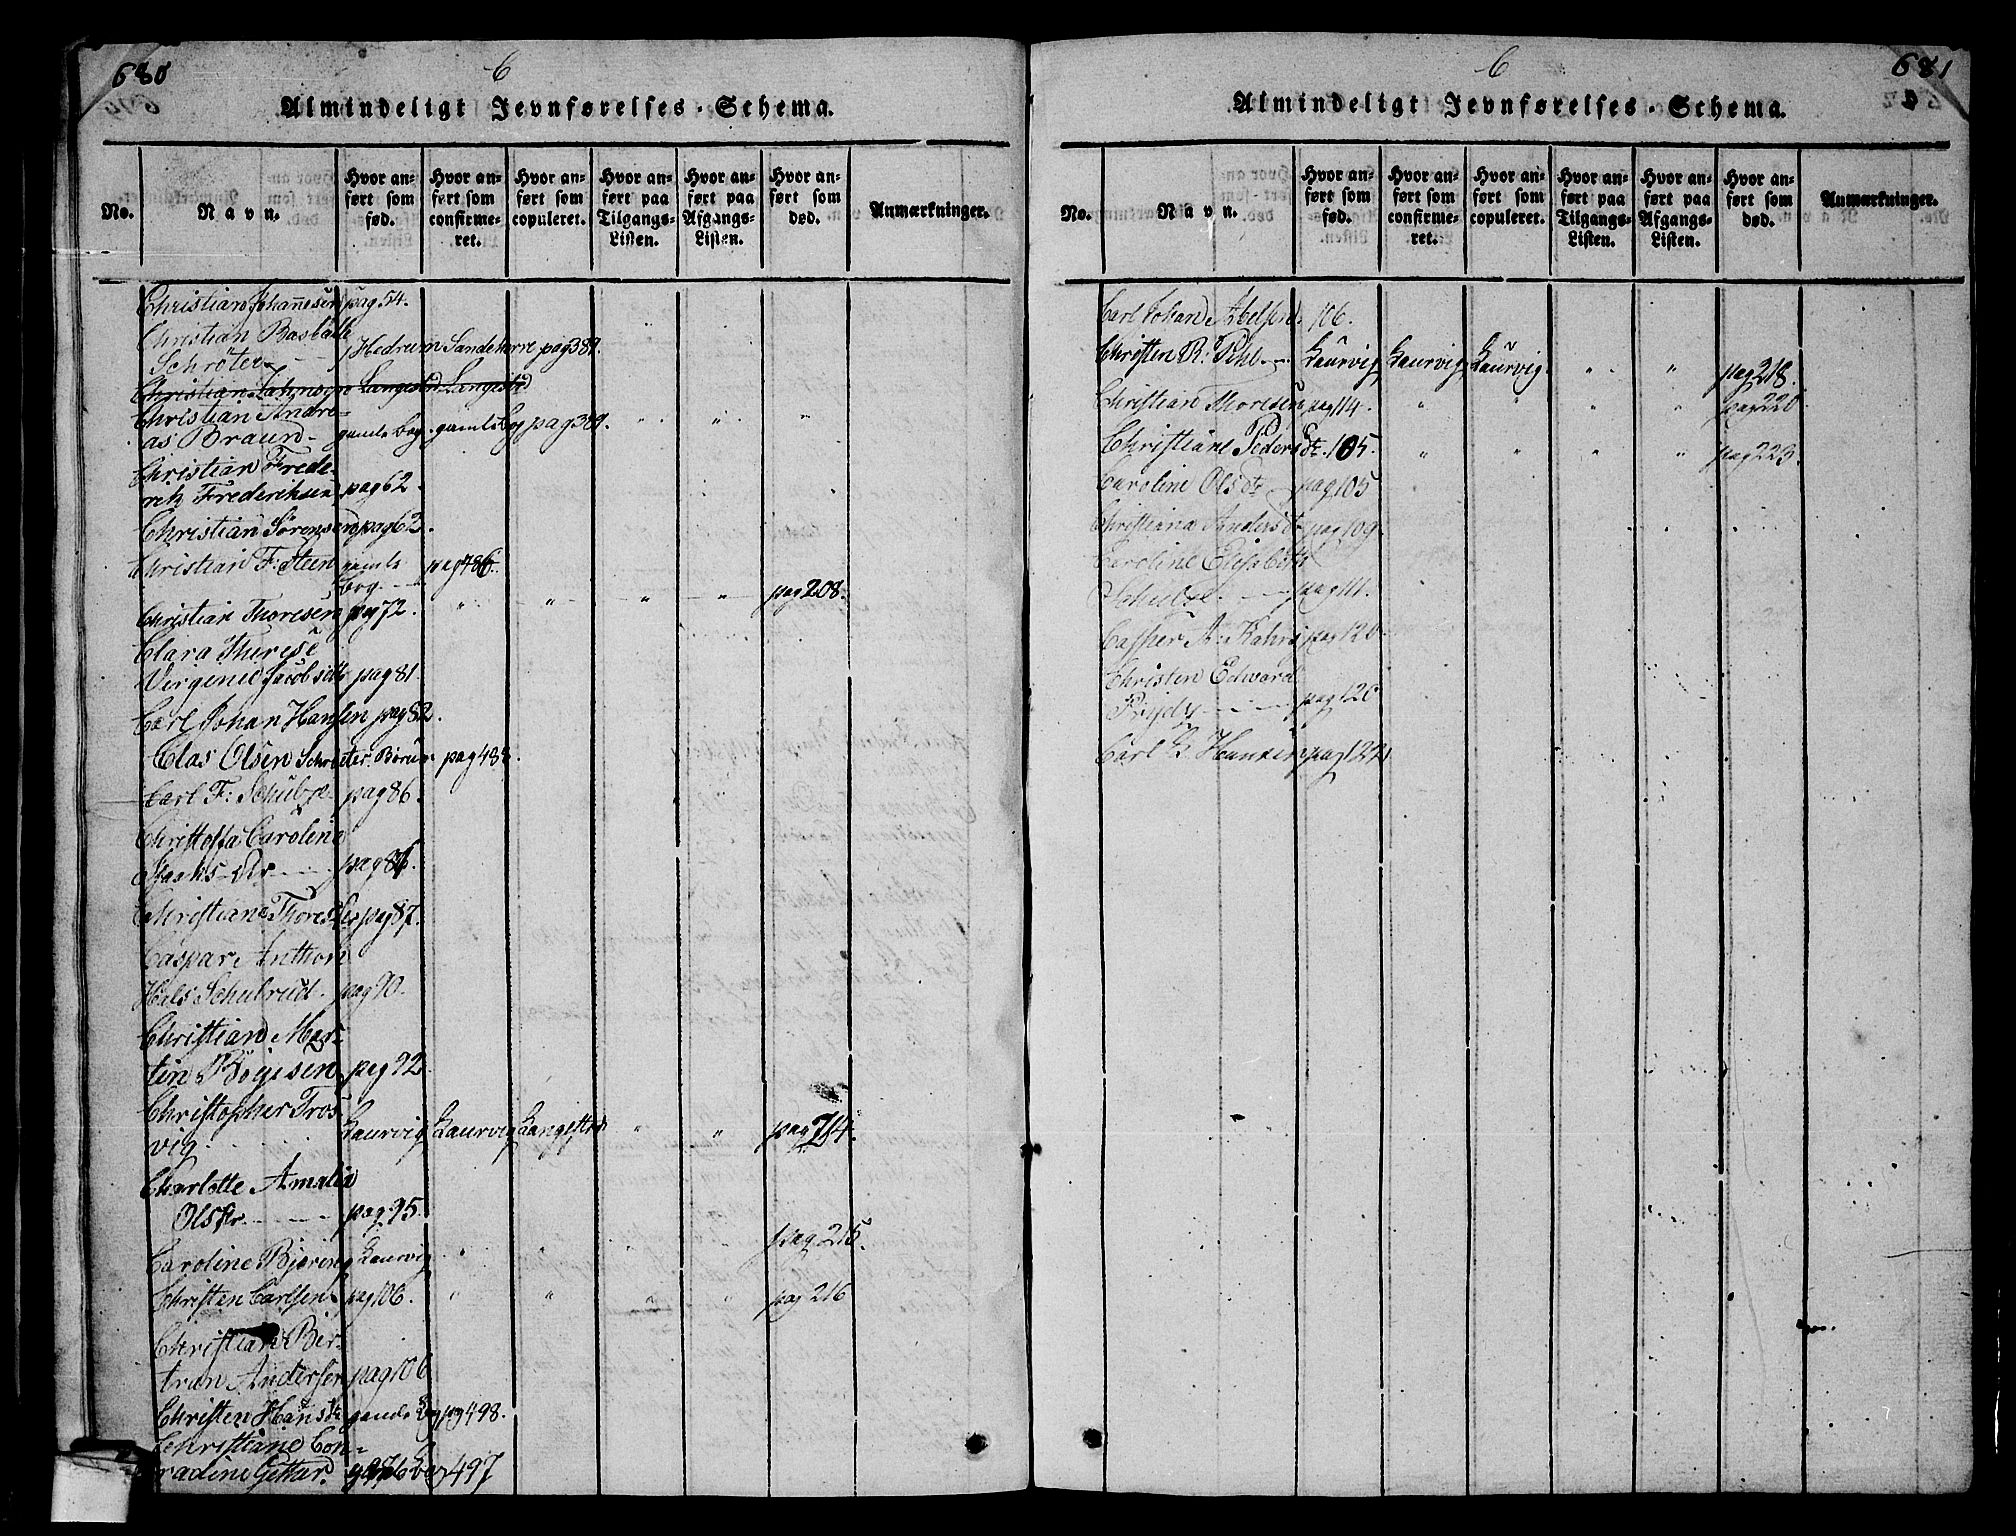 680
C
Almindeligt Jevnførelses-Schema.
No.
Navn.
Hvor anført som fød.
Hvor anført som confirmeret.
Hvor anført som copuleret.
Hvor anført paa Tilgangs-Listen.
Hvor anført paa Afgangs-Listen.
Hvor anført som død.
Anmærkninger.
Christian Johannesen pag 54.
Christian
Schröter Hedrum Sandeherre pag 389.
Christian Langestad Langestad
Christian Andre-
as Braun gamle bog. gamle bog pag 389. " " "
Christian Frede-
rch Frederichsen pag 62.
Christian Sørensen pag 62.
Christian F: Steen gamle pag 486.
bog.
Christian Thoresen pag 72. " " " " pag 208.
Clara Therese
Virgenie Jacobsdtr pag 81.
Carl Johan Hansen pag 82.
Clas Olsen Schrøeter. Børum pag 488.
Carl F: Schubze pag 86.
Christoffa Caroline
Isachs-Dr pag 86.
Christiane Thores pag 87.
Caspar Anthon
Schulrud. pag 90.
Christian Mar-
tin Bøyesen pag 92.
Christopher Tros-
vig Laurvig Laurvig Langesti " " pag 214.
Charlotte Amalia
Olsdr pag 95.
Caroline Bjøreng Laurvig " " " " pag 215.
Christen Carlsen pag 106. " " " " pag 216
Christian Ber-
tran Andersen pag 106
Christen Hansdtr gamle bog pag 498.
Christiane Con-
radine 497
C
681
Almindeligt Jevnførelses-Schema.
No.
Navn.
Hvor anført som fød.
Hvor anført som confirmeret.
Hvor anført som copuleret.
Hvor anført paa Tilgangs-Listen.
Hvor anført paa Afgangs-Listen.
Hvor anført som død.
Anmærkninger.
Carl Johan Abelsen 106.
Christen R: Pihl Laurvig Laurvig Laurvig. " " pag 218.
Christian Thoresen pag 114. " " " " pag 220.
Christiane Pedersdtr. 105. " " " " pag 223.
Caroline Olsdtr pag 105
Christiana Andersdtr pag 109.
Caroline Elisabeth
Schubze pag 111.
Casper A: Kahrs pag 120
Christen Edward
pag 120
Carl B. Hansen pag 122